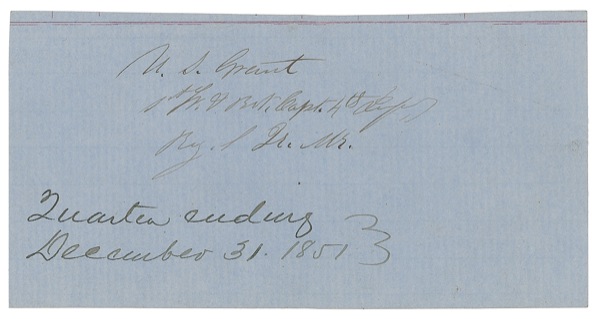 U. S. Grant
1st Lt & Bvt. Capt. 4th Infy
Reg. Qr. Mr.
Quarter ending
December 31. 1851